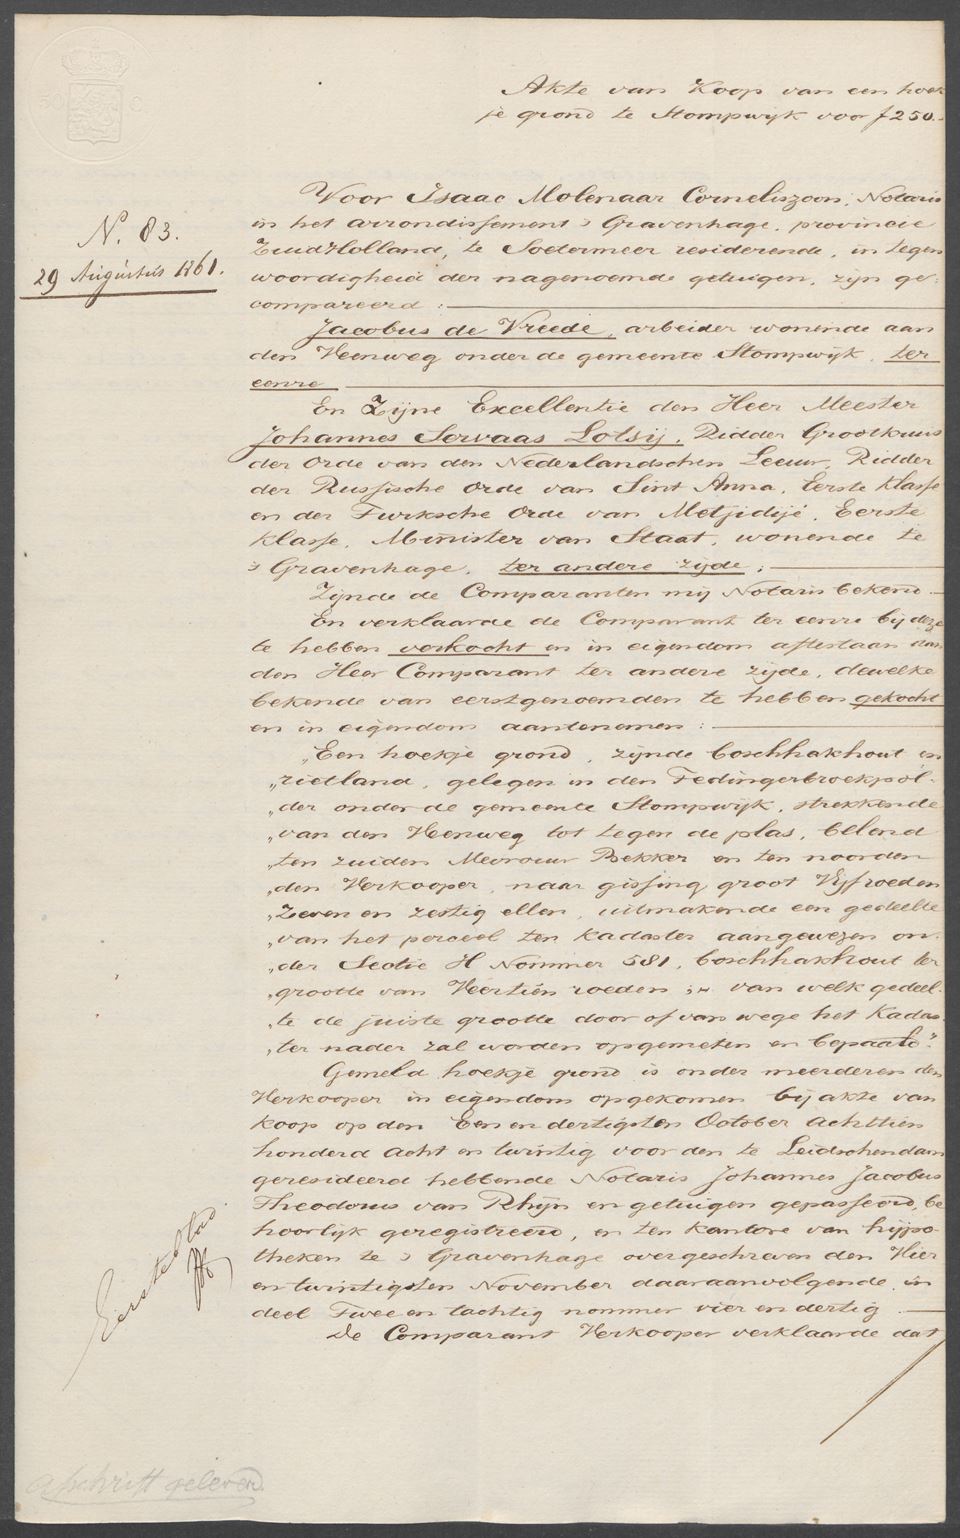 Akte van Koop van een hoek
je grond te Stompwijk voor f 250.
N. 83.
29 Augustus 1861.
Voor Isaac Molenaar Corneliszoon, Notaris
in het arrondissement 's Gravenhage, provincie
Zuid Holland, te Soetermeer residerende, in tegen
woordigheid der nagenoemde getuigen, zijn ge-
compareerd:
Jacobus de Vreede, arbeider wonende aan
den Veenweg onder de gemeente Stompwijk, ter
eenre
En Zijne Excellentie den Heer Meester
Johannes Servaas Lotsij, Ridder Grootkruis
der Orde van den Nederlandschen Leeuw, Ridder
der Russische Orde van Sint Anna, Eerste Klasse
en der Turksche Orde van Metjidijé, Eerste
Klasse, Minister van Staat, wonende te
's Gravenhage, ter andere zijde;
Zijnde de Comparanten mij Notaris bekend
En verklaarde de Comparant ter eenre bij deze
te hebben verkocht en in eigendom aftestaan aan
den Heer Comparant ter andere zijde, dewelke
bekende van eerstgenoemden te hebben gekocht
en in eigendom aantenemen:
„Een hoekje grond, zijnde boschhakhout en
„rietland, gelegen in den Tedingerbroekpol-
„der onder de gemeente Stompwijk, strekkende
„van den Veenweg tot tegen de plas, belend
„ten zuiden Mevrouw Bekker en ten noorden
„den Verkooper, naar gissing groot Vijf roeden
„Zeven en zestig ellen, uitmakende een gedeelte
„van het perceel ten kadaster aangewezen on-
„der Sectie H Nommer 581, boschhakhout ter
„grootte van Veertien roeden ; van welk gedeel-
„te de juiste grootte door of van wege het Kadas-
„ter nader zal worden opgemeten en bepaald."
Gemeld hoekje grond is onder meerderen den
Verkooper in eigendom opgekomen bij akte van
koop op den Een en dertigsten October achttien
honderd acht en twintig voor den te Leidschendam
geresideerd hebbende Notaris Johannes Jacobus
Theodorus van Rhijn en getuigen gepasseerd, be
hoorlijk geregistreerd, en ten kantore van hypo-
theken te 's Gravenhage overgeschreven den Vier
en twintigsten November daaraanvolgende in
deel Twee en tachtig nommer vier en dertig
De Comparant Verkooper verklaarde dat
Eerste blad
Afschrift gelever